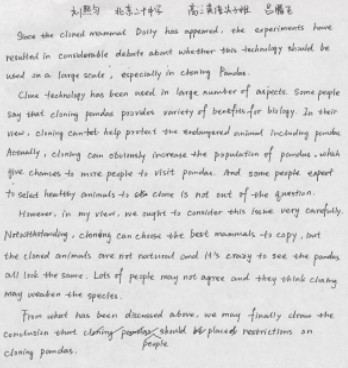 刘照匀 北京二十中学 高三英语尖子班 吕鹏飞
Since the cloned mammal Dolly has appeared, the experiments have
resulted in considerable debate about whether this technology should be
used on a large scale, especially in cloning Pandas.
Clone technology has been used in large number of aspects. Some people
say that cloning pandas provides variety of benefits for biology. In their
view, cloning can help protect the endangered animal including panda
Actually, cloning can obviously increase the population of pandas, which
give chances to more people to visit pandas. And some people expect
to select healthy animals to clone is not out of the question.
However, in my view, we ought to consider this issue very carefully.
Notwithstanding, cloning can choose the best mammals to copy, but
the cloned animals are not natural and it's crazy to see the pandas
all look the same. Lots of people may not agree and they think cloning
may weaken the species.
From what has been discussed above, we may finally draw the
conclusion that people should placed restrictions on
cloning pandas.